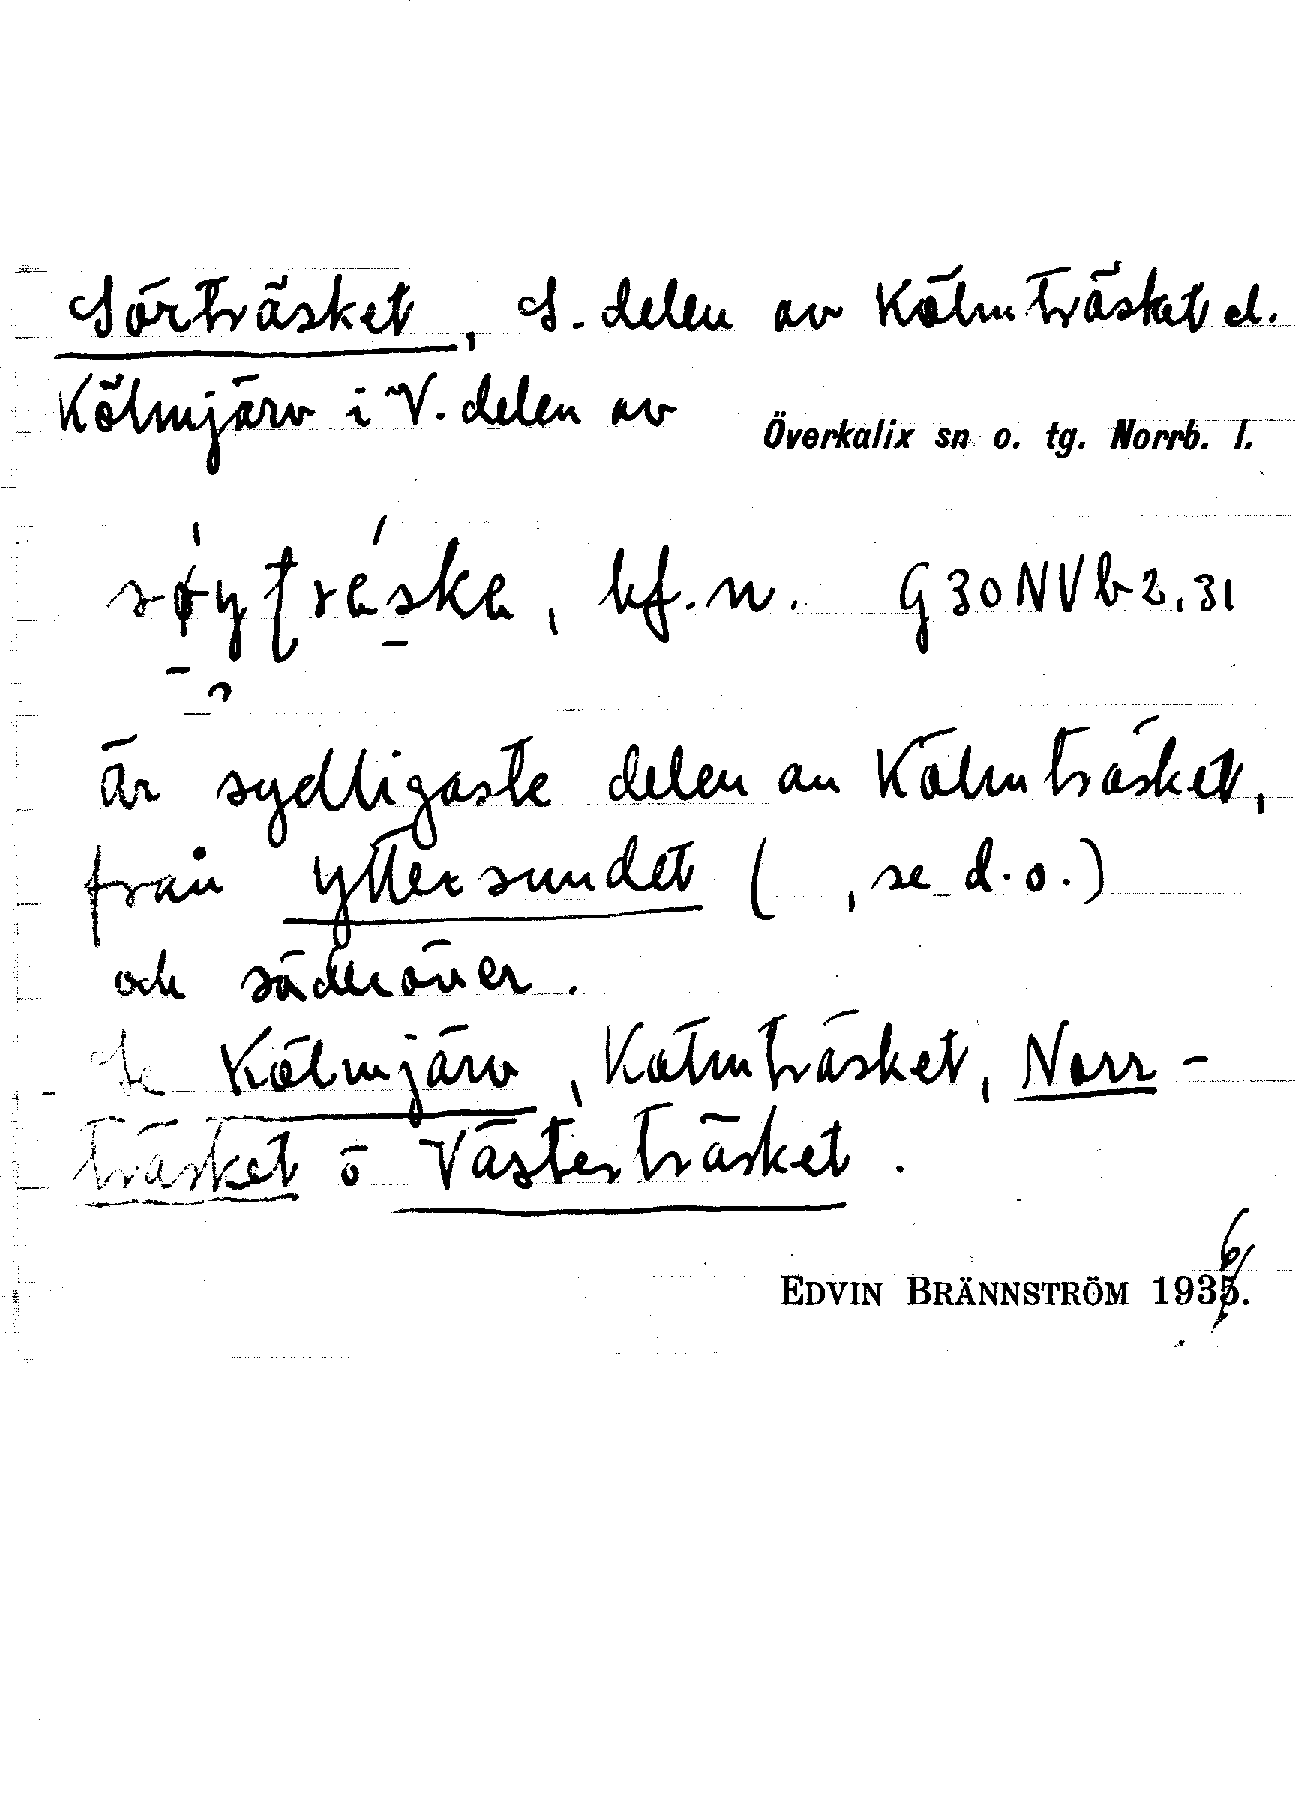 Sörträsket, S. delen av Kölmträsket el.
Kölmjärv i V. delen av Överkalix sn o. tg. Norrb. l.
bf. n. G 30 NV b 2, 31
är sydligaste delen av Kölmträsket,
från Yttersundet ( , se d. o.)
och söderöver.
Se Kölmjärv, Kölmträsket, Norr-
träsket o Västerträsket.
EDVIN BRÄNNSTRÖM 1936.